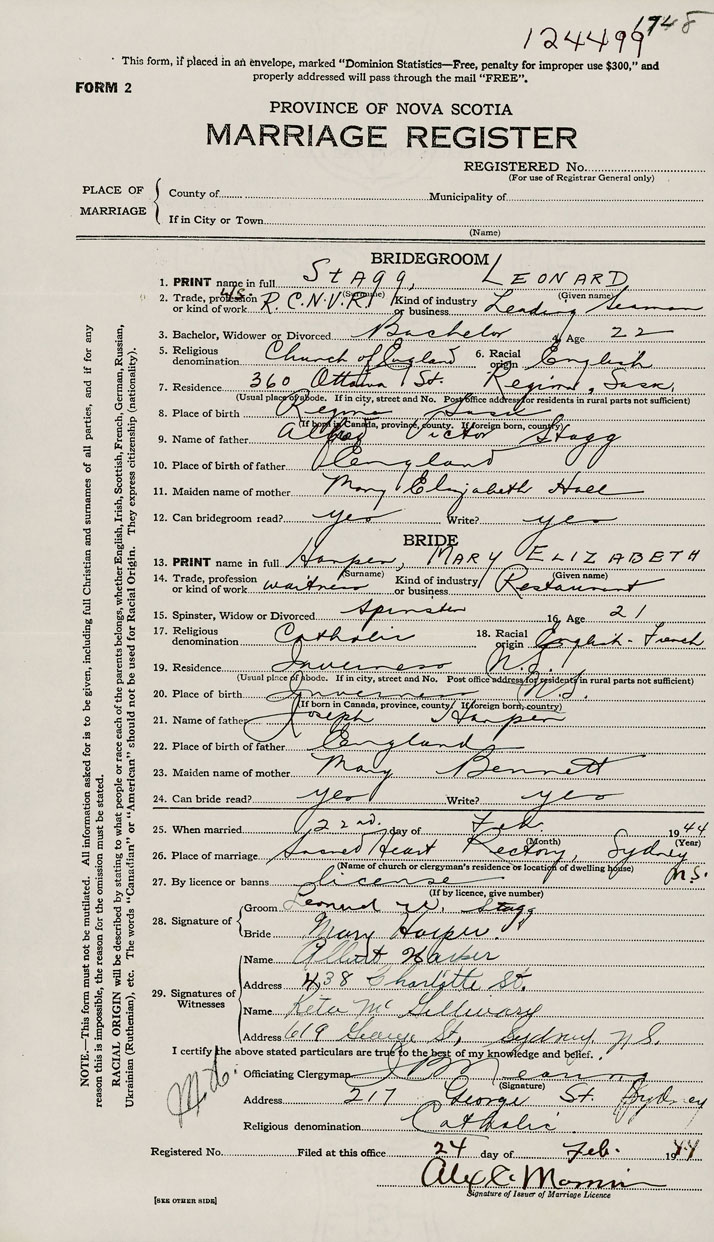 124499 1748
This form, if placed in an envelope, marked "Dominion Statistics—Free, penalty for improper use $300," and
properly addressed will pass through the mail "FREE".
FORM 2
PROVINCE OF NOVA SCOTIA
MARRIAGE REGISTER
REGISTERED No.
(For use of Registrar General only)
PLACE OF MARRIAGE
County of Municipality of
If in City or Town
(Name)
BRIDEGROOM
1. PRINT name in full STAGG, LEONARD
(Surname) (Given name)
2. Trade, profession or kind of work R.C.N.V.R. Kind of industry or business Leading Seaman
3. Bachelor, Widower or Divorced Bachelor 4. Age 22
5. Religious denomination Church of England 6. Racial origin English
7. Residence 360 Ottawa St. Regina, Sask.
(Usual place of abode. If in city, street and No. Post office address for residents in rural parts not sufficient)
8. Place of birth Regina Sask
(If born in Canada, province, county. If foreign born, country)
9. Name of father Alfred Victor Stagg
10. Place of birth of father England
11. Maiden name of mother Mary Elizabeth Hall
12. Can bridegroom read? yes Write? yes
BRIDE
13. PRINT name in full Harper, MARY ELIZABETH
(Surname) (Given name)
14. Trade, profession or kind of work waitress Kind of industry or business Restaurant
15. Spinster, Widow or Divorced Spinster 16. Age 21
17. Religious denomination Catholic 18. Racial origin English-French
19. Residence Inverness N.S.
(Usual place of abode. If in city, street and No. Post office address for residents in rural parts not sufficient)
20. Place of birth Inverness N.S.
(If born in Canada, province, county. If foreign born, country)
21. Name of father Joseph Harper
22. Place of birth of father England
23. Maiden name of mother Mary Bennett
24. Can bride read? yes Write? yes
25. When married 22nd. day of Feb. 1944
(Month) (Year)
26. Place of marriage Sacred Heart Rectory, Sydney N.S.
(Name of church or clergyman's residence or location of dwelling house)
27. By licence or banns license
(If by licence, give number)
28. Signature of
Groom Leonard W. Stagg
Bride Mary Harper.
29. Signatures of Witnesses
Name Albert
Address 438 Charlotte St.
Name
Address 619 George St, Sydney N.S.
I certify the above stated particulars are true to the best of my knowledge and belief.
Officiating Clergyman
(Signature)
Address 217 George St Sydney
Religious denomination Catholic
Registered No. Filed at this office 24 day of Feb. 1944
Signature of Issuer of Marriage Licence
[SEE OTHER SIDE]
NOTE.—This form must not be mutilated. All information asked for is to be given, including full Christian and surnames of all parties, and if for any
reason this is impossible, the reason for the omission must be stated.
RACIAL ORIGIN will be described by stating to what people or race each of the parents belongs, whether English, Irish, Scottish, French, German, Russian,
Ukrainian (Ruthenian), etc. The words "Canadian" or "American" should not be used for Racial Origin. They express citizenship (nationality).